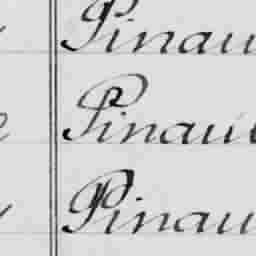 Pinau
Pinaul
Pinau